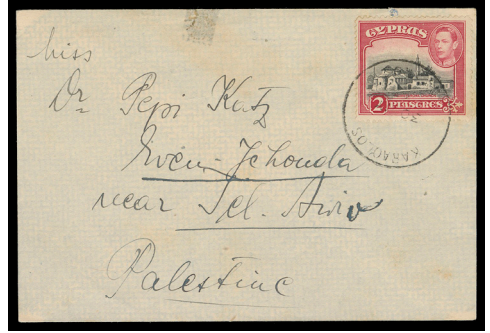 Miss
Dr Pepi Katz
Even-Jehouda
near Tel. Aviv
Palestine
CYPRUS
2 PIASTRES
KARAOLOS